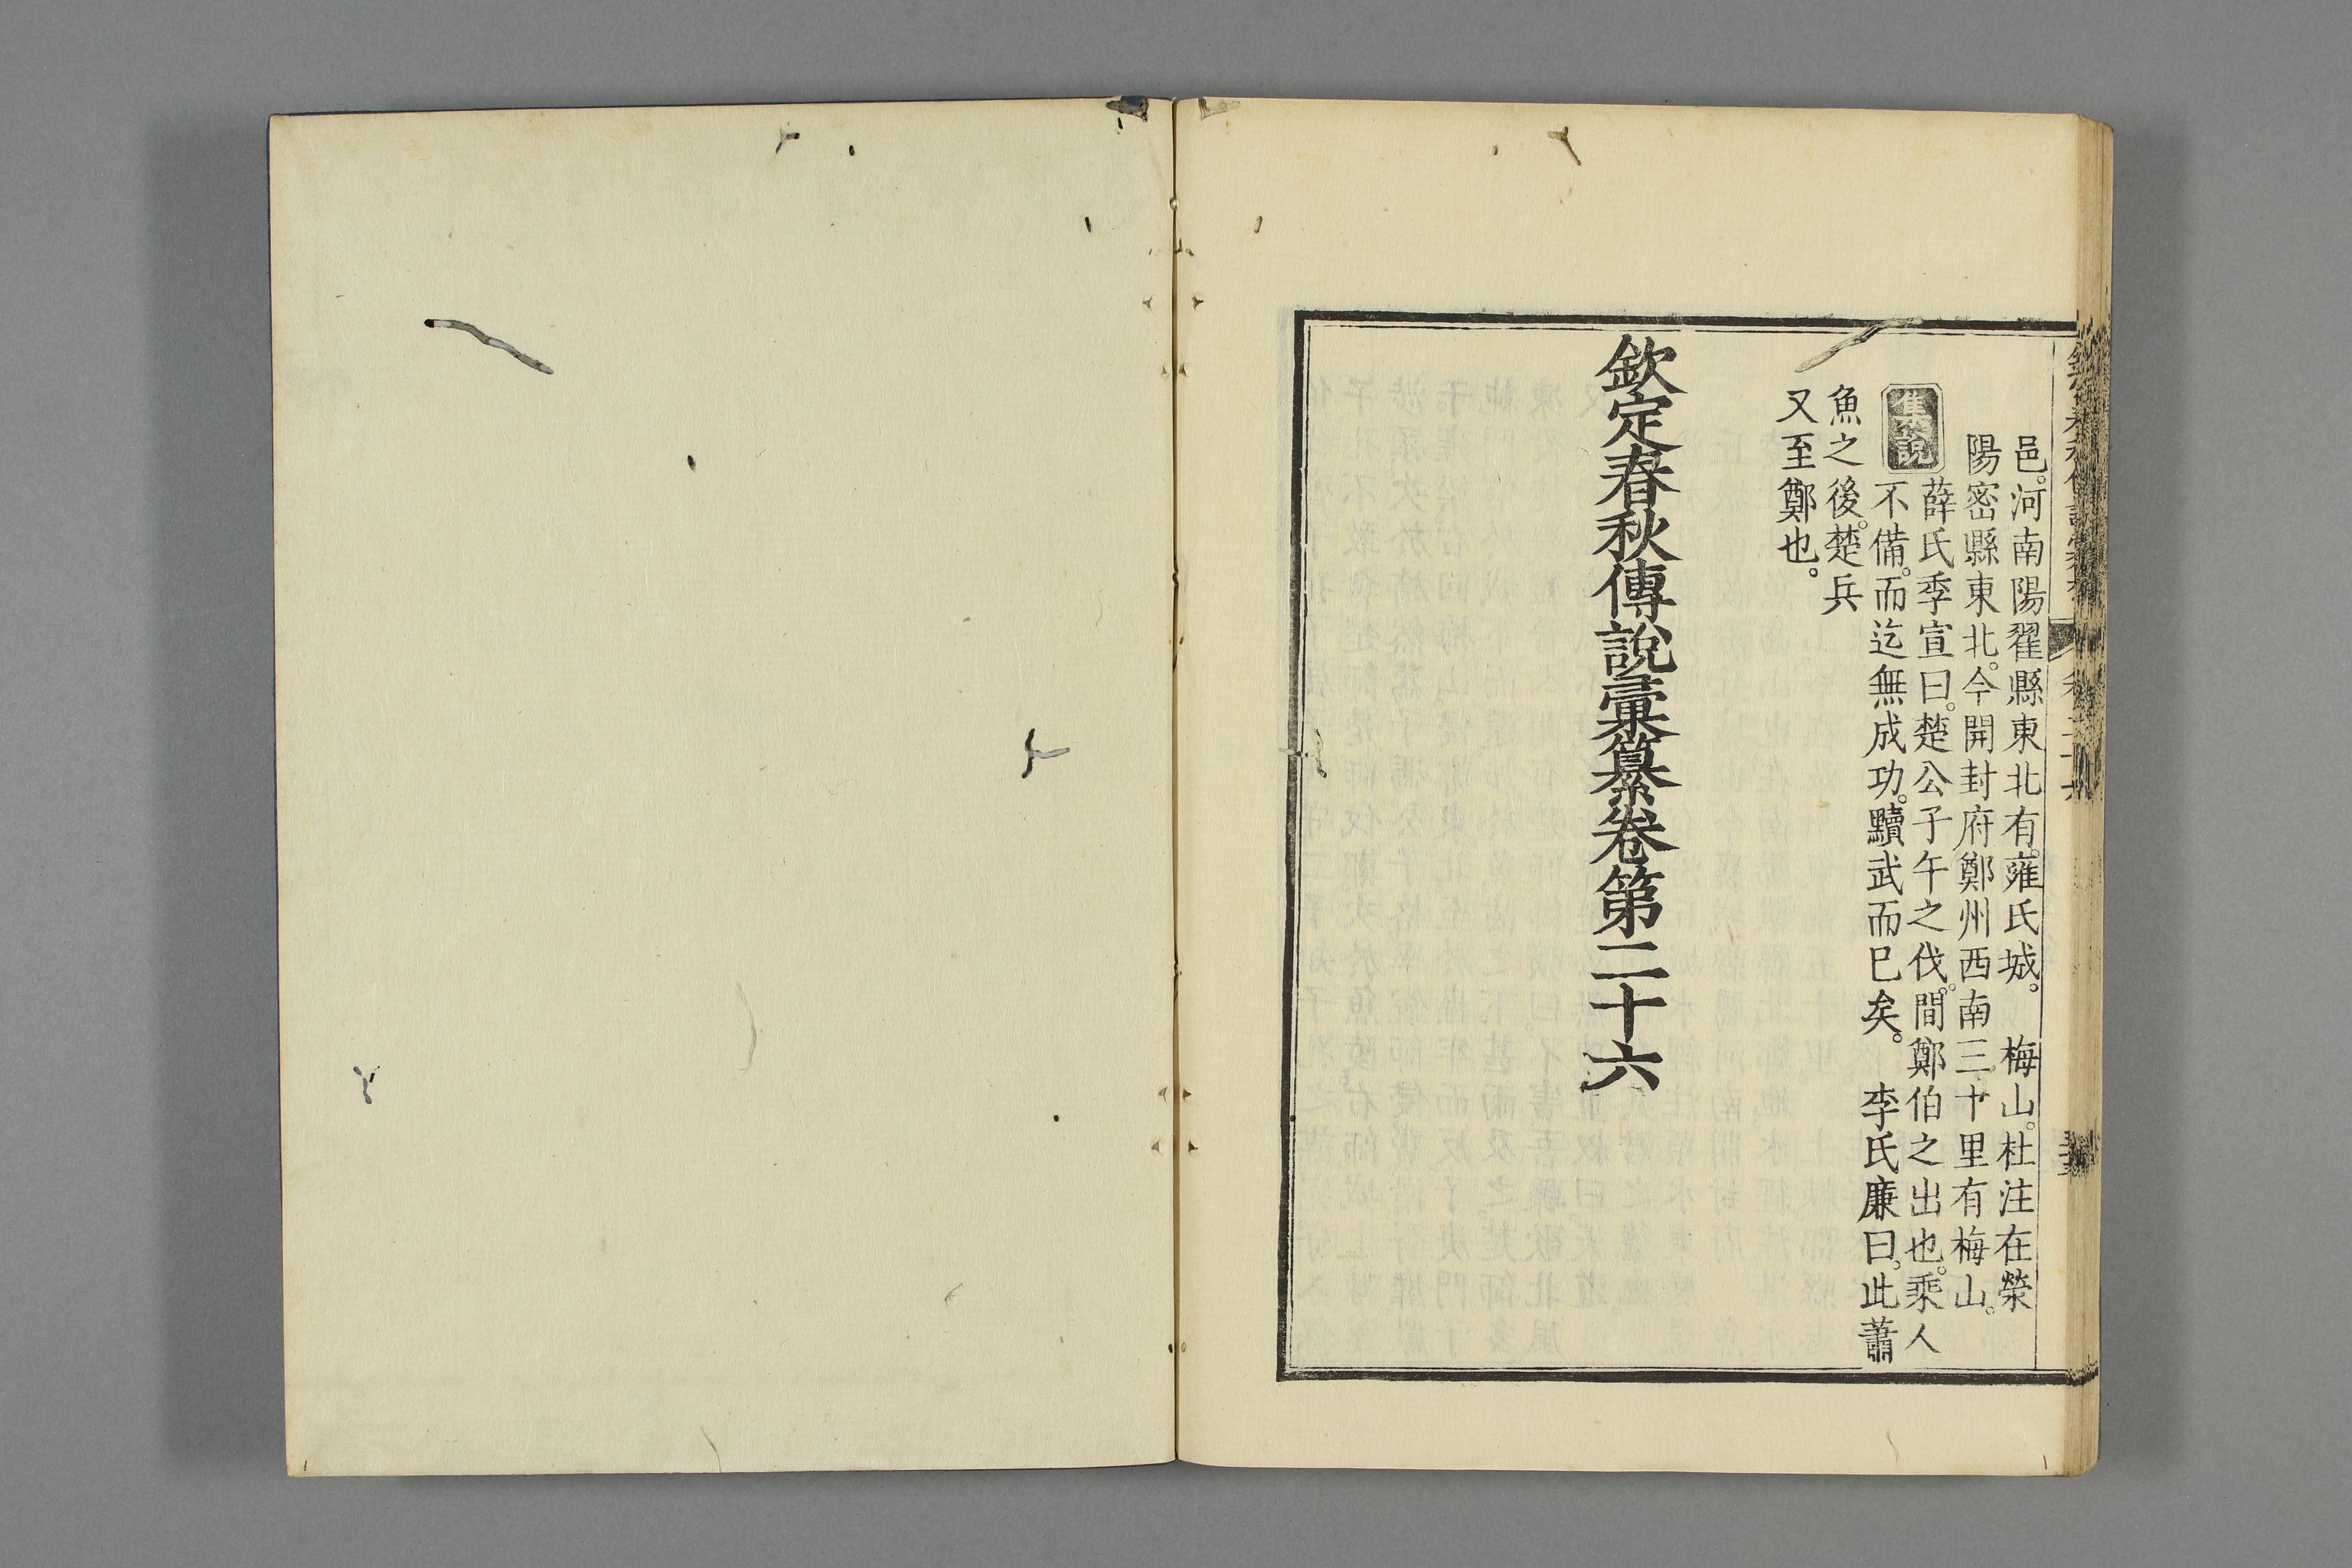 邑。河南陽翟縣東北有。雍氏城。　梅山。杜注在滎
陽密縣東北。今開封府鄭州西南三十里有梅山。
集說
薛氏季宣曰。楚公子午之伐。間鄭伯之出也。乘人
不備。而迄無成功。黷武而巳矣。　李氏廉曰。此蕭
魚之後。楚兵
又至鄭也。
欽定春秋傳說彙纂卷第二十六